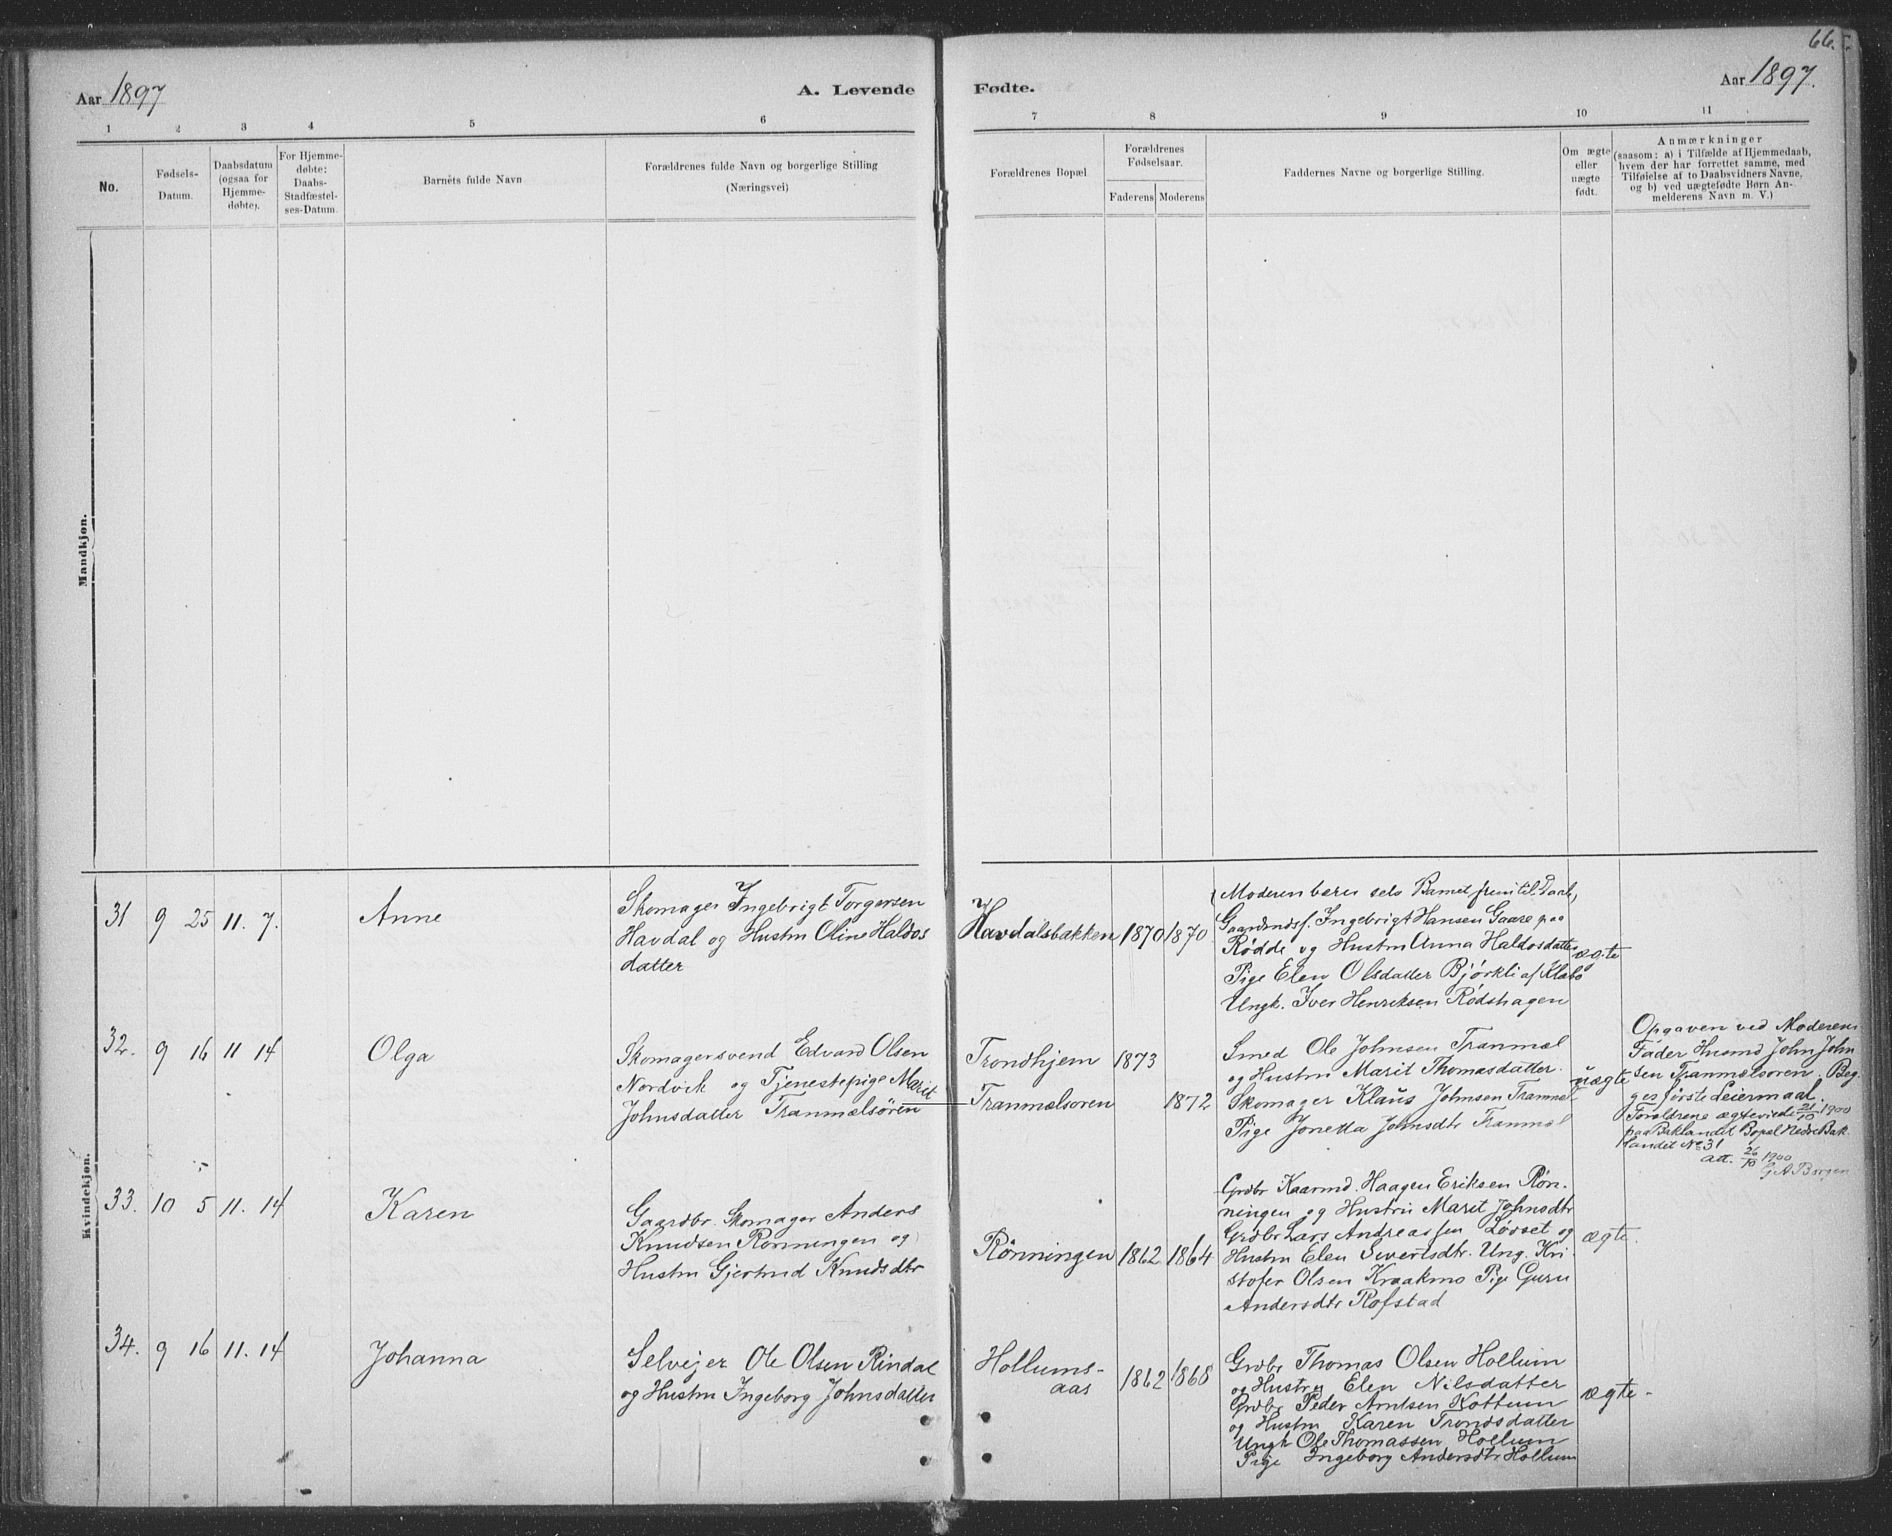 66.
Aar 1897
A. Levende
Fødte.
Aar 1897.
1 2 3 4 5 6
7 8 9 10 11
No.
Fødsels-
Datum.
Daabsdatum
(ogsaa for
Hjemme-
døbte).
For Hjemme-
døbte:
Daabs-
Stadfæstel-
ses-Datum.
Barnets fulde Navn
Forældrenes fulde Navn og borgerlige Stilling
(Næringsvei)
Forældrenes Bopæl.
Forældrenes
Fødselsaar.
Faderens Moderens
Faddernes Navne og borgerlige Stilling.
Om ægte
eller
uægte
født.
Anmærkninger
(saasom: a) i Tilfælde af Hjemmedaab,
hvem der har forrettet samme, med
Tilføielse af to Daabsvidners Navne,
og b) ved uægtefødte Børn An-
melderens Navn m. V.)
Mandkjøn.
Kvindekjøn.
31 9 25 11. 7.
Anne
Skomager Ingebrigt Torgersen
Havdal og Hustru Oline Haldos
datter
Havdalsbakken 1870 1870
Moderen bærer selv Barnet frem til Daab,
Gaardmdsf. Ingebrigt Hansen Gaare paa
Rødde og Hustru Anna Haldosdatter
Pige Elen Olsdatter Bjørkli af Klæbo
Ungk. Iver Henriksen Rødshagen
ægte
32. 9 16 11 14
Olga
Skomagersvend Edvard Olsen
Nordvik og Tjenestepige Marit
Johnsdatter Tranmælsören
Trondhjem 1873
Tranmælsoren 1872
Smed Ole Johnsen Tranmæl
og Hustru Marit Thomasdatter.
Skomager Klaus Johnsen Tranmæl
Pige Jonetta Johnsdtr Tranmæl
uægte
Opgaven ved Moderens
Fader Husmd John John
sen Tranmælsoren. Beg
ges første Leiermaal.
Forældrene ægteviede 21/10 1900
paa Baklandet Bopæl Nedre Bak
landet No 31
att. 26/10 1900
G A Borgen
33. 10 5 11. 14
Karen
Gaardbr. Skomager Anders
Knudsen Rønningen og
Hustru Gjertrud Knudsdtr
Rönningen 1862 1864
Grdbr Kaarmd. Haagen Eriksen Røn-
ningen og Hustru Marit Johnsdtr
Grdbr Lars Andreassen Løsset og
Hustru Elen Sivertsdtr. Ung. Kri
stofer Olsen Kraakmo Pige Guru
Andersdtr Rofstad
ægte.
34. 9 16 11. 14
Johanna
Selveier Ole Olsen Rindal
og Hustru Ingeborg Johnsdatter
Hollums-
aas 1862 1868
Grdbr Thomas Olsen Hollum
og Hustru Elen Nilsdatter
Grdbr Peder Arntsen Kottum
og Hustru Karen Trondsdatter
Ungk Ole Thomassen Hollum
Pige Ingeborg Andersdtr Hollum
ægte-